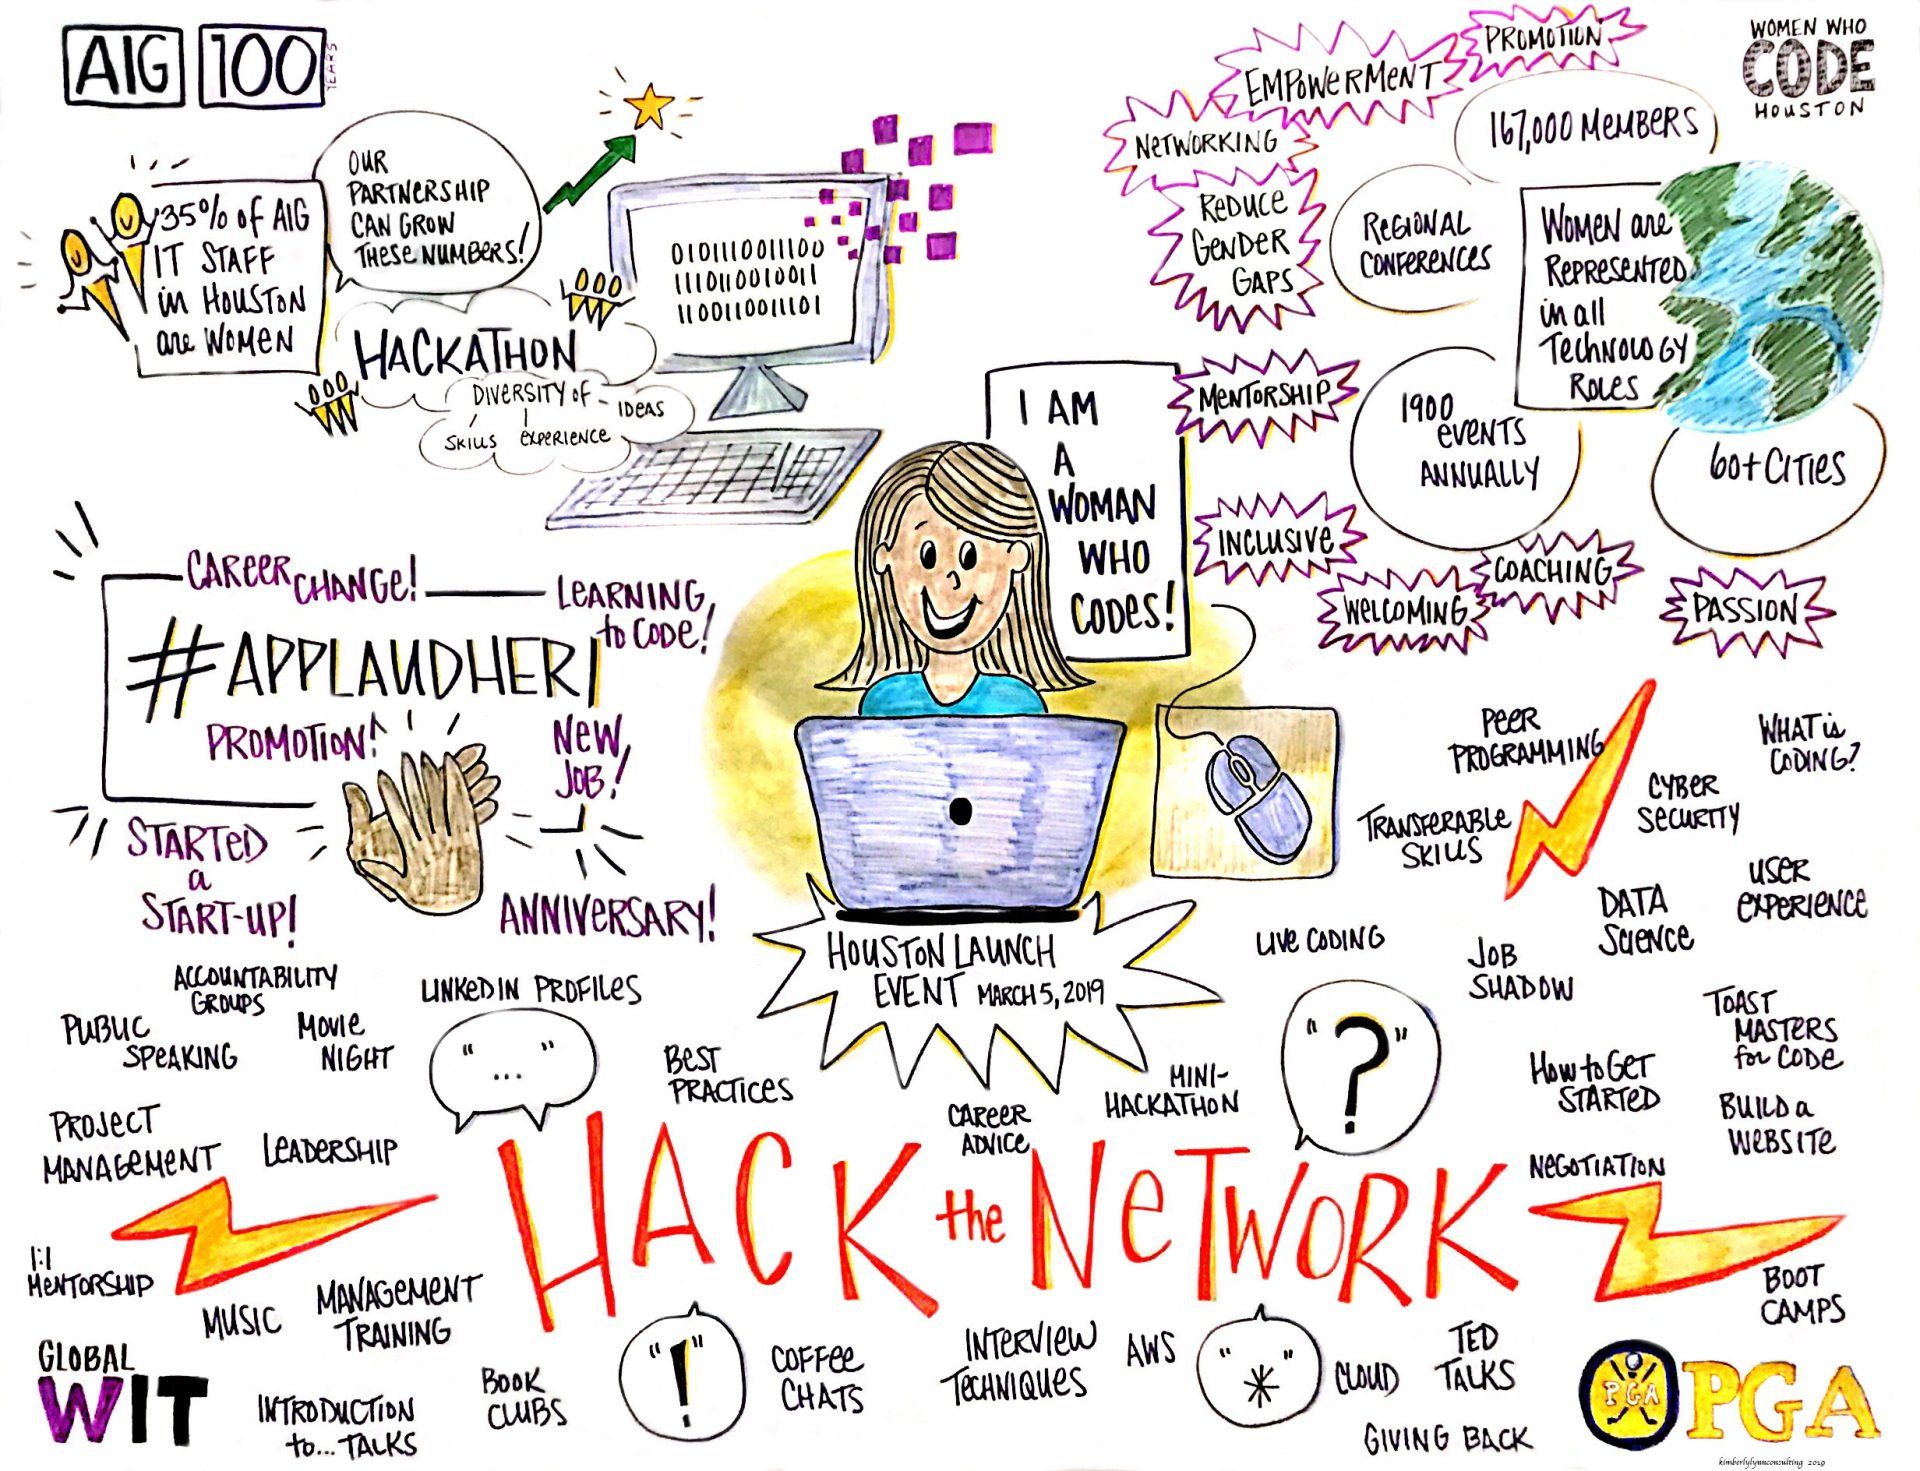 AIG 100
YEARS
35% of AIG
IT STAFF
in HOUSTON
are WOMEN
OUR
PARTNERSHIP
CAN GROW
THESE NUMBERS!
HACKATHON
DIVERSITY of - IDEAS
SKILLS EXPERIENCE
010111001110 0
1110110010011
1100110011101
I AM
A
WOMAN
WHO
CODES!
PROMOTION
EMPOWERMENT
NETWORKING
REDUCE
GENDER
GAPS
MENTORSHIP
INCLUSIVE
WELCOMING
COACHING
PASSION
WOMEN WHO
CODE
HOUSTON
167,000 MEMBERS
REGIONAL
CONFERENCES
WOMEN are
REPRESENTED
in all
TECHNOLOGY
ROLES
1900
EVENTS
ANNUALLY
60+ CITIES
CAREER CHANGE!
LEARNING
to CODE!
#APPLAUDHER!
PROMOTION!
NEW
JOB!
STARTED
a
START-UP!
ANNIVERSARY!
HOUSTON LAUNCH
EVENT MARCH 5, 2019
PEER
PROGRAMMING
WHAT is
CODING?
TRANSFERABLE
SKILLS
CYBER
SECURITY
DATA
SCIENCE
USER
EXPERIENCE
LIVE CODING
JOB
SHADOW
TOAST
MASTERS
for CODE
HOW to GET
STARTED
BUILD a
WEBSITE
NEGOTIATION
BOOT
CAMPS
MINI-
HACKATHON
"?"
CAREER
ADVICE
BEST
PRACTICES
LINKEDIN PROFILES
"..."
ACCOUNTABILITY
GROUPS
PUBLIC
SPEAKING
MOVIE
NIGHT
PROJECT
MANAGEMENT
LEADERSHIP
HACK the NETWORK
1:1
MENTORSHIP
MUSIC
MANAGEMENT
TRAINING
GLOBAL
WIT
INTRODUCTION
to... TALKS
BOOK
CLUBS
"!"
COFFEE
CHATS
INTERVIEW
TECHNIQUES
AWS
"*"
CLOUD
TED
TALKS
GIVING BACK
PGA
PGA
kimberlylynnconsulting 2019